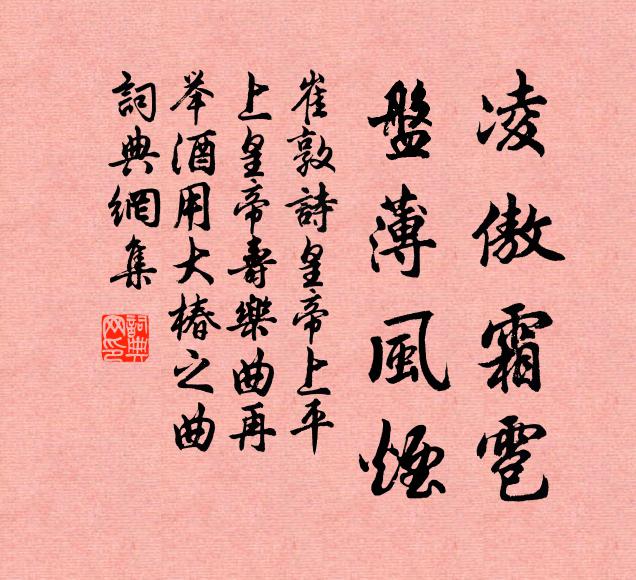 凌傲霜雹
盤薄風煙
崔敦詩皇帝上平
上皇帝壽樂曲再
举酒用大椿之曲
詞典網集
詞典網印